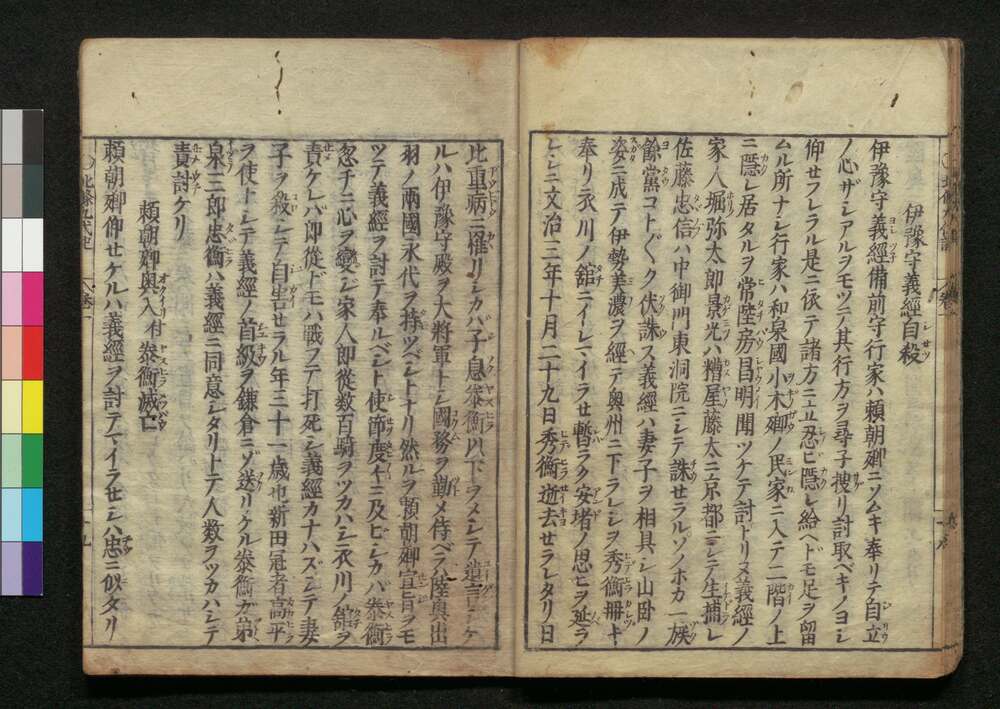 伊豫守義經自殺
伊豫守義經備前守行家ハ頼朝卿ニソムキ奉リテ自立
ノ心ザシアルヲモツテ其行方ヲ尋子捜リ討取ベキノヨシ
仰セフレラル是ニ依テ諸方ニ立忍ビ隱レ給ヘドモ足ヲ留
ムル所ナシ行家ハ和泉國小木郷ノ民家ニ入テ二階ノ上
ニ隱レ居タルヲ常陸房昌明聞ツケテ討トリヌ義經ノ
家人堀弥太郎景光ハ糟屋藤太ニ京都ニシテ生捕レ
佐藤忠信ハ中御門東洞院ニシテ誅セラルソノホカ一族
餘黨コト〴〵ク伏誅ス義經ハ妻子ヲ相具シ山臥ノ
姿ニ成テ伊勢美濃ヲ經テ奥州ニ下ラレシヲ秀衡册キ
奉リ衣川ノ舘ニイレマイラせ暫ラク安堵ノ思ヒヲ延ラ
レシニ文治三年十月二十九日秀衡逝去せラレタリ日
此重病ニ罹リシカバ子息泰衡以下ヲメシテ遺言シケ
ルハ伊豫守殿ヲ大將軍トシ國務ヲ勤メ侍ベラバ陸奥出
羽ノ兩國永代ヲ持ツベシトナリ然ルヲ頼朝卿宣旨ヲモ
ツテ義經ヲ討テ奉ルベシト使節度々ニ及ビシカバ泰衡
忽チニ心ヲ變ジ家人郎從数百騎ヲツカハシ衣川ノ舘ヲ
責ケレバ郎從ドモハ戰フテ打死シ義經カナハズシテ妻
子ヲ殺シテ自害せラル年三十一歳也新田冠者高平
ヲ使トシテ義經ノ首級ヲ鎌倉ニゾ送リケル泰衡ガ弟
泉三郎忠衡ハ義經ニ同意シタリトテ人数ヲツカハシテ
責討ケリ
頼朝卿奥入付泰衡滅亡
頼朝卿仰せケルハ義經ヲ討テマイラせシハ忠ニ似タリ